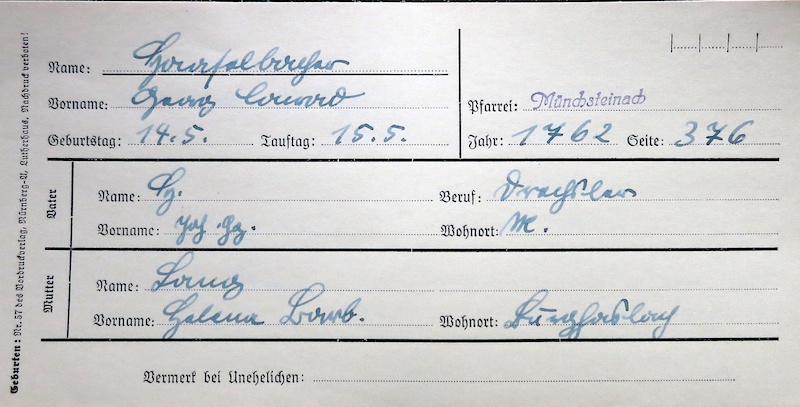 Name: Haaselbacher
Vorname: Georg Conrad
Pfarrei: Münchsteinach
Geburtstag: 14.5. Tauftag: 15.5.
Jahr: 1762 Seite: 376
Vater
Name: H.
Beruf: Drechsler
Vorname: Joh. Gg.
Wohnort: M.
Mutter
Name: Lang
Vorname: Helena Barb.
Wohnort: Burghaslach
Vermerk bei Unehelichen:
Geburten: Nr. 57 des Vordruckverlag, Nürnberg-A, Lutherhaus, Nachdruck verboten!